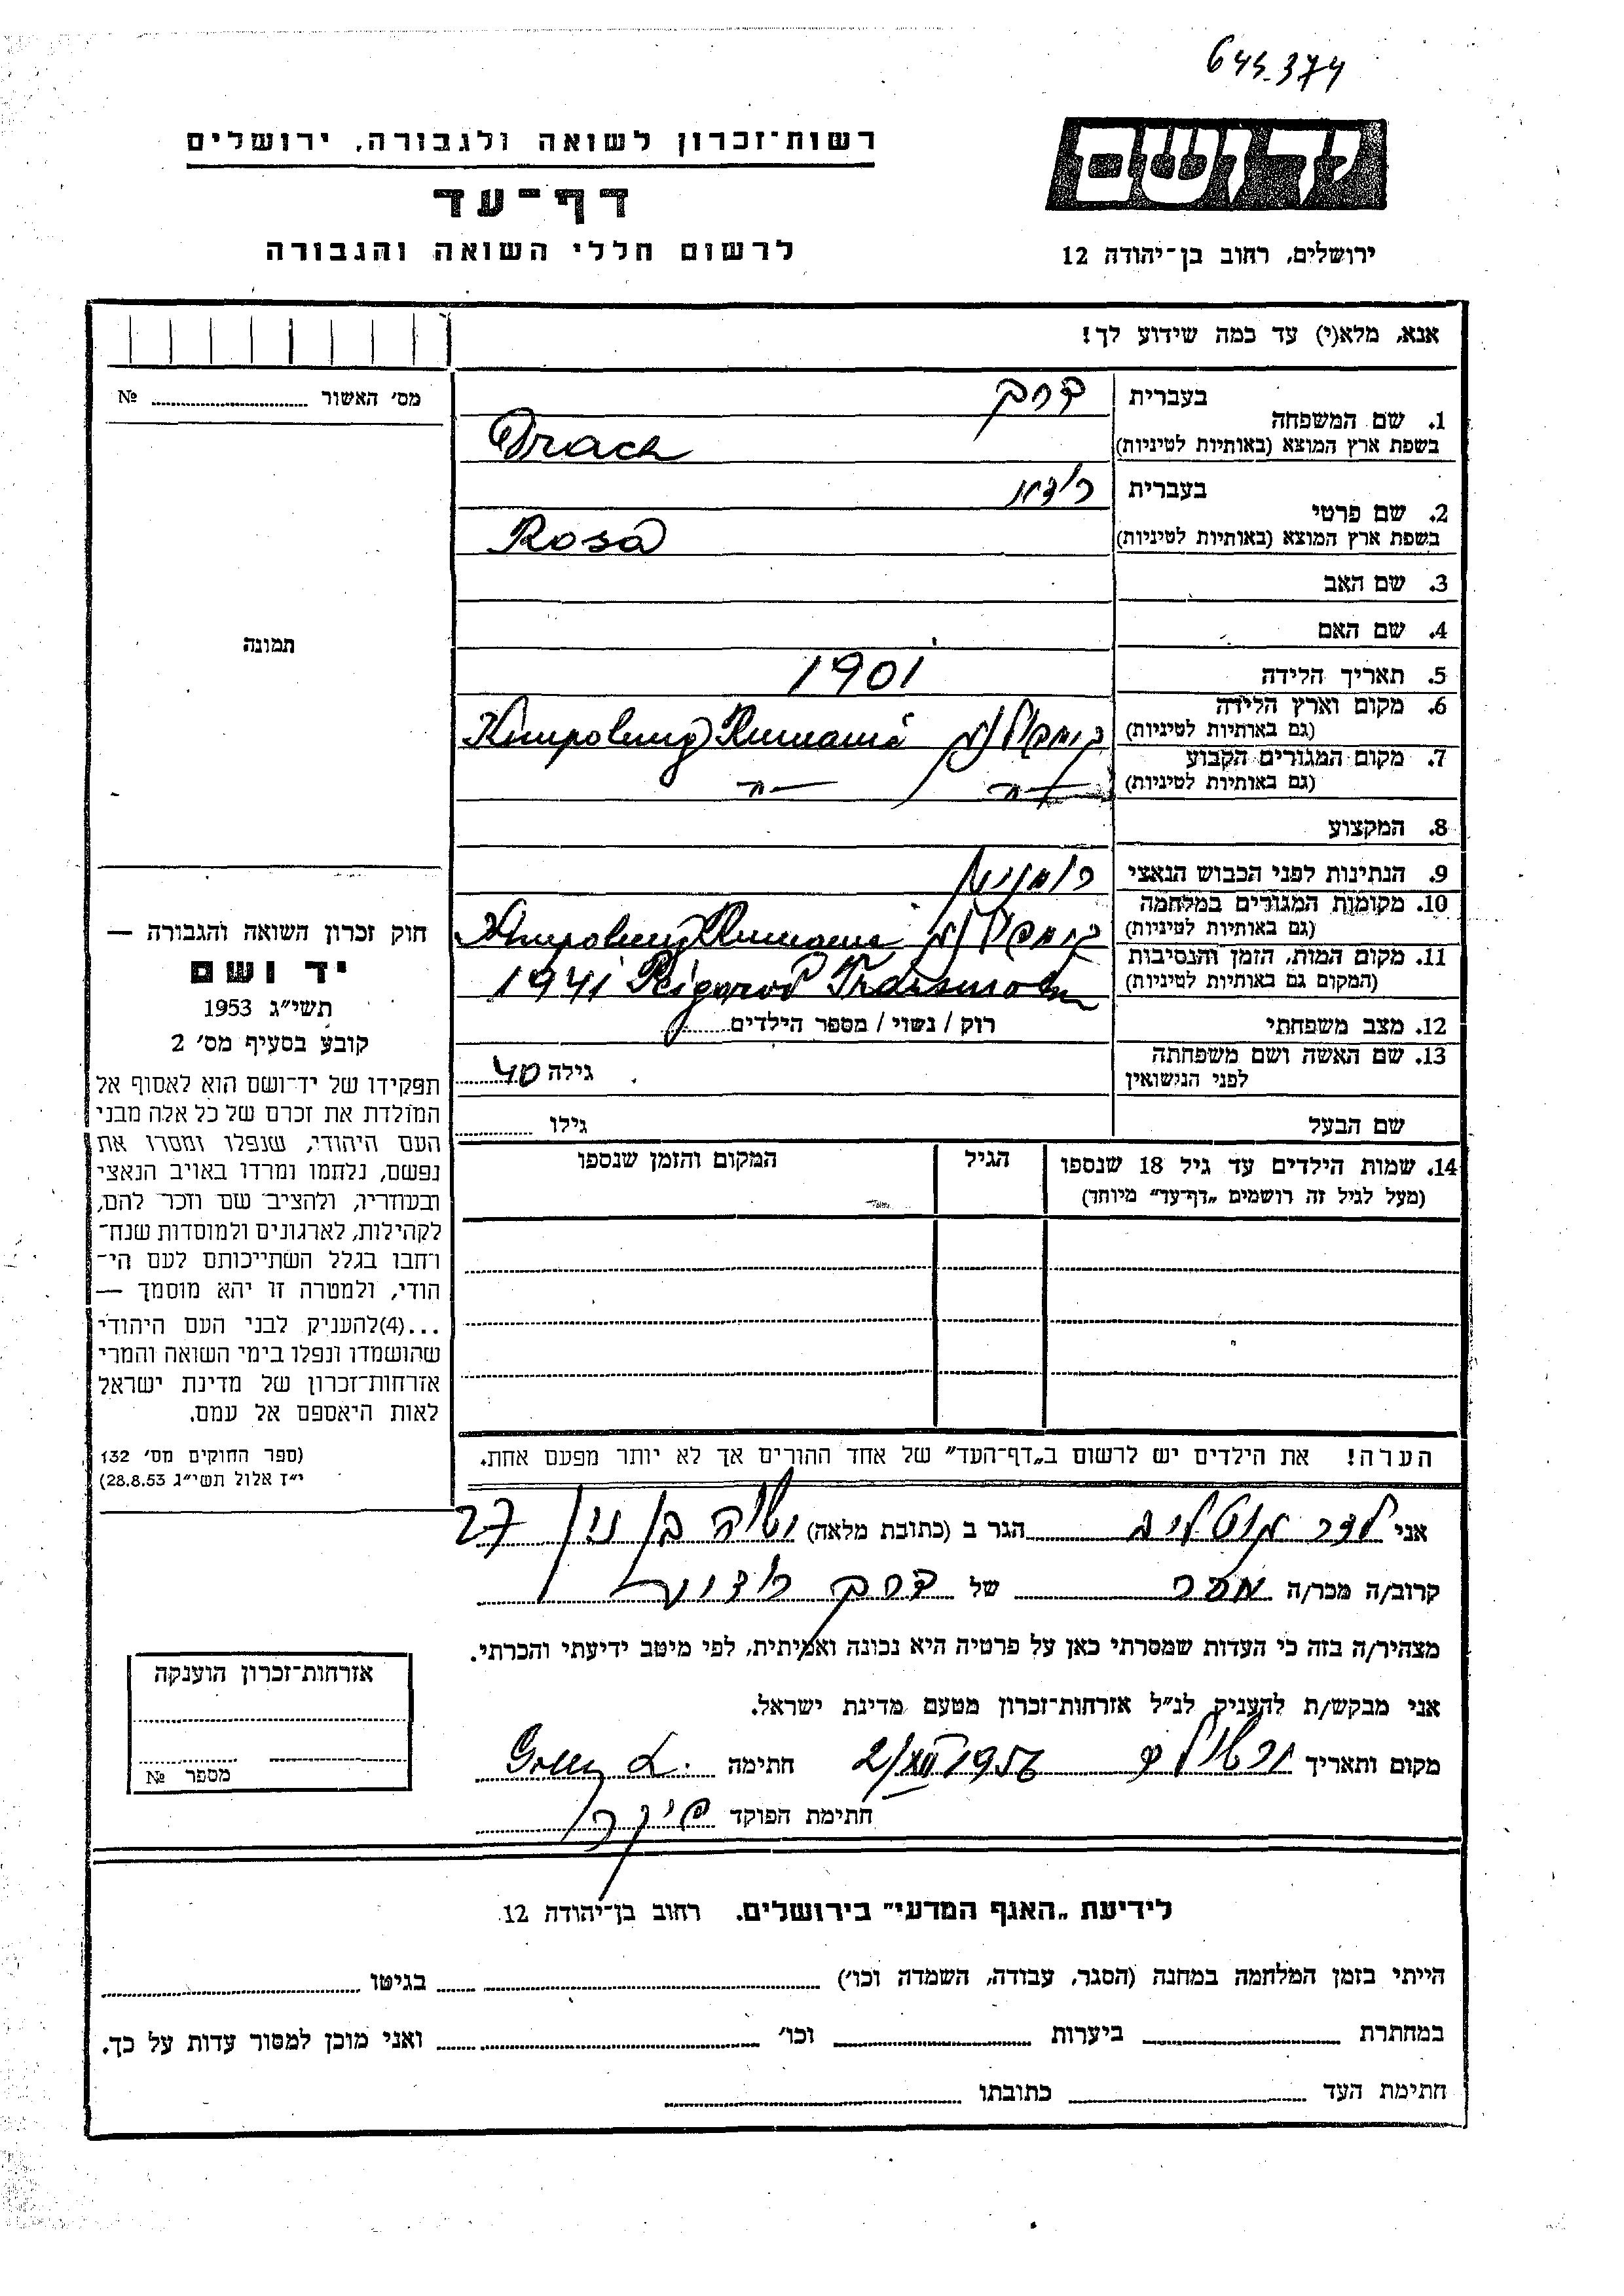 645.374
רשות־זכרון לשואה ולגבורה, ירושלים
דף־עד
לרשום חללי השואה והגבורה
יד ושם
ירושלים, רחוב בן־יהודה 12
אנא, מלא(י) עד כמה שידוע לך!
מס׳ האשור № ........
1. שם המשפחה
בעברית דרך
בשפת ארץ המוצא (באותיות לטיניות) Drach
2. שם פרטי
בעברית רוזה
בשפת ארץ המוצא (באותיות לטיניות) Rosa
3. שם האב
4. שם האם
תמונה
5. תאריך הלידה 1901
6. מקום וארץ הלידה
(גם באותיות לטיניות) קימפולונג Kimpolung Rumania
7. מקום המגורים הקבוע
(גם באותיות לטיניות) —״— —״—
8. המקצוע
9. הנתינות לפני הכבוש הנאצי רומנית
10. מקומות המגורים במלחמה
(גם באותיות לטיניות) קימפולונג Kimpolung Rumania
11. מקום המות, הזמן והנסיבות
(המקום גם באותיות לטיניות) 1941
12. מצב משפחתי רוק / נשוי / מספר הילדים........
13. שם האשה ושם משפחתה
לפני הנישואין גילה 40
שם הבעל גילו ........
14. שמות הילדים עד גיל 18 שנספו
(מעל לגיל זה רושמים „דף־עד״ מיוחד)
הגיל
המקום והזמן שנספו
חוק זכרון השואה והגבורה —
יד ושם
תשי״ג 1953
קובע בסעיף מס׳ 2
תפקידו של יד־ושם הוא לאסוף אל
המולדת את זכרם של כל אלה מבני
העם היהודי, שנפלו ומסרו את
נפשם, נלחמו ומרדו באויב הנאצי
ובעוזריו, ולהציב שם וזכר להם,
לקהילות, לארגונים ולמוסדות שנח־
רחבו בגלל השתייכותם לעם הי־
הודי, ולמטרה זו יהא מוסמך —
...(4)להעניק לבני העם היהודי
שהושמדו ונפלו בימי השואה והמרי
אזרחות־זכרון של מדינת ישראל
לאות היאספם אל עמם.
(ספר החוקים מס׳ 132
י״ז אלול תשי״ג 28.8.53)
הערה! את הילדים יש לרשום ב„דף־העד״ של אחד ההורים אך לא יותר מפעם אחת.
אני ........ הגר ב (כתובת מלאה) ........ בן 27
קרוב/ה מכר/ה מכר של דרך רוזה
מצהיר/ה בזה כי העדות שמסרתי כאן על פרטיה היא נכונה ואמיתית, לפי מיטב ידיעתי והכרתי.
אני מבקש/ת להעניק לנ״ל אזרחות־זכרון מטעם מדינת ישראל.
מקום ותאריך ירושלים 2/XII 1956 חתימה
חתימת הפוקד
אזרחות־זכרון הוענקה
מספר №
לידיעת „האגף המדעי״ בירושלים. רחוב בן־יהודה 12
הייתי בזמן המלחמה במחנה (הסגר, עבודה, השמדה וכו׳) ........ בגיטו ........
במחתרת ........ ביערות ........ וכו׳ ........ ואני מוכן למסור עדות על כך.
חתימת העד ........ כתובתו ........